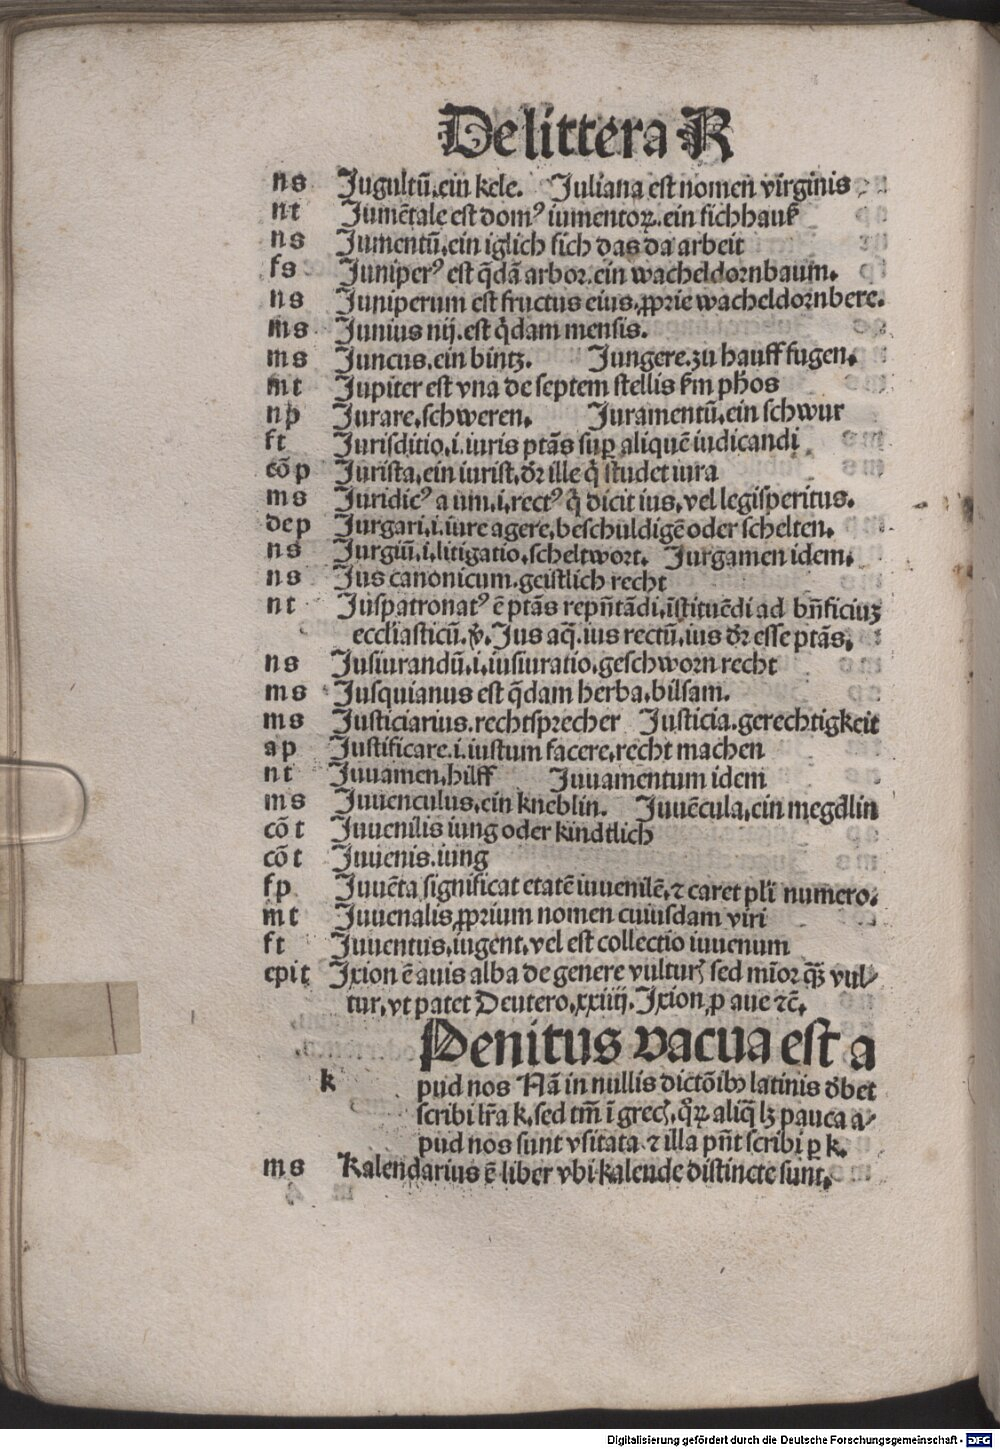 De littera K
ns Jugultū.ein kele. Juliana est nomen virginis
nt Jumētale est domꝰ iumentoꝝ.ein fichhauß
ns Jumentū.ein iglich fich das da arbeit
fs Juniperꝰ est q̄dā arbor.ein wacheldornbaum.
ns Juniperum est fructus eius.ꝓprie wacheldornbere.
ms Junius nij.est q̄dam mensis.
ms Juncus.ein bintz. Jungere.zu hauff fugen.
mt Jupiter est vna de septem stellis ẜm ph̄os
np Jurare.schweren. Juramentū.ein schwur
ft Jurisditio.i.iuris ptās suꝑ aliquē iudicandi
cōp Jurista.ein iurist.ẟr ille q̇ studet iura
ms Juridicꝰ a um.i.rectꝰ q̇ dicit ius.vel legisperitus.
dep Jurgari.i.iure agere.beschuldigē oder schelten.
ns Jurgiū.i.litigatio.scheltwort. Jurgamen idem.
ns Jus canonicum.geistlich recht
nt Juspatronatꝰ ē ptās repn̄tādi.īstituēdi ad bn̄ficiuꝫ
eccliasticū.ꝟ.Jus aq̄.ius rectū.ius ẟr esse ptās.
ns Jusiurandū.i.iusiuratio.geschworn recht
ms Jusquianus est q̄dam herba.bilsam.
ms Justiciarius.rechtsprecher Justicia.gerechtigkeit
ap Justificare.i.iustum facere.recht machen
nt Juuamen.hilff Juuamentum idem
ms Juuenculus.ein kneblin. Juuēcula.ein megdlin
cōt Juuenilis iung oder kindtlich
cōt Juuenis.iung
fp Juuēta significat etatē iuuenilē.⁊ caret pl̄i numero.
mt Juuenalis.ꝓprium nomen cuiusdam viri
ft Juuentus.iugent.vel est collectio iuuenum
epit Jxion ē auis alba de genere vulturꝭ sed mīor q̄ꝫ vul⸗
tur.vt patet Deutero.xxiiij.Jxion ꝓ aue ⁊c̄.
Penitus vacua est a
k pud nos Nā in nullis dictōibꝰ latinis ẟbet
scribi lr̄a k.sed tm̄ ī grecꝭ.q̄ꝝ aliq̄ lꝫ pauca a⸗
pud nos sunt vsitata ⁊ illa pn̄t scribi ꝑ k.
ms Kalendarius ē liber vbi kalende distincte sunt.
Digitalisierung gefördert durch die Deutsche Forschungsgemeinschaft - DFG